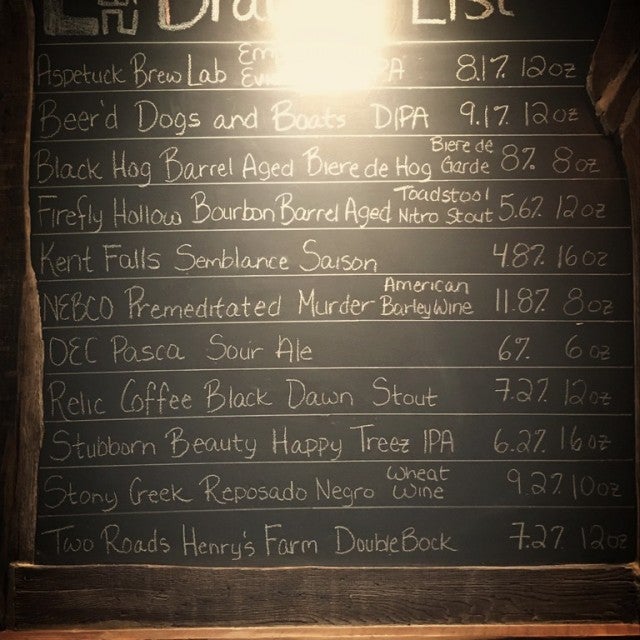 List
Aspetuck Brew Lab 8.1% 12oz
Beer'd Dogs and Boats DIPA 9.1% 12oz
Black Hog Barrel Aged Biere de Hog Biere de Garde 8% 8oz
Firefly Hollow Bourbon Barrel Aged Toadstool Nitro Stout 5.6% 12oz
Kent Falls Semblance Saison 4.8% 16oz
NEBCO Premeditated Murder American Barleywine 11.8% 8oz
OEC Pasca Sour Ale 6% 6oz
Relic Coffee Black Dawn Stout 7.2% 12oz
Stubborn Beauty Happy Treez IPA 6.2% 16oz
Stony Creek Reposado Negro Wheat Wine 9.2% 10oz
Two Roads Henry's Farm DoubleBock 7.2% 12oz